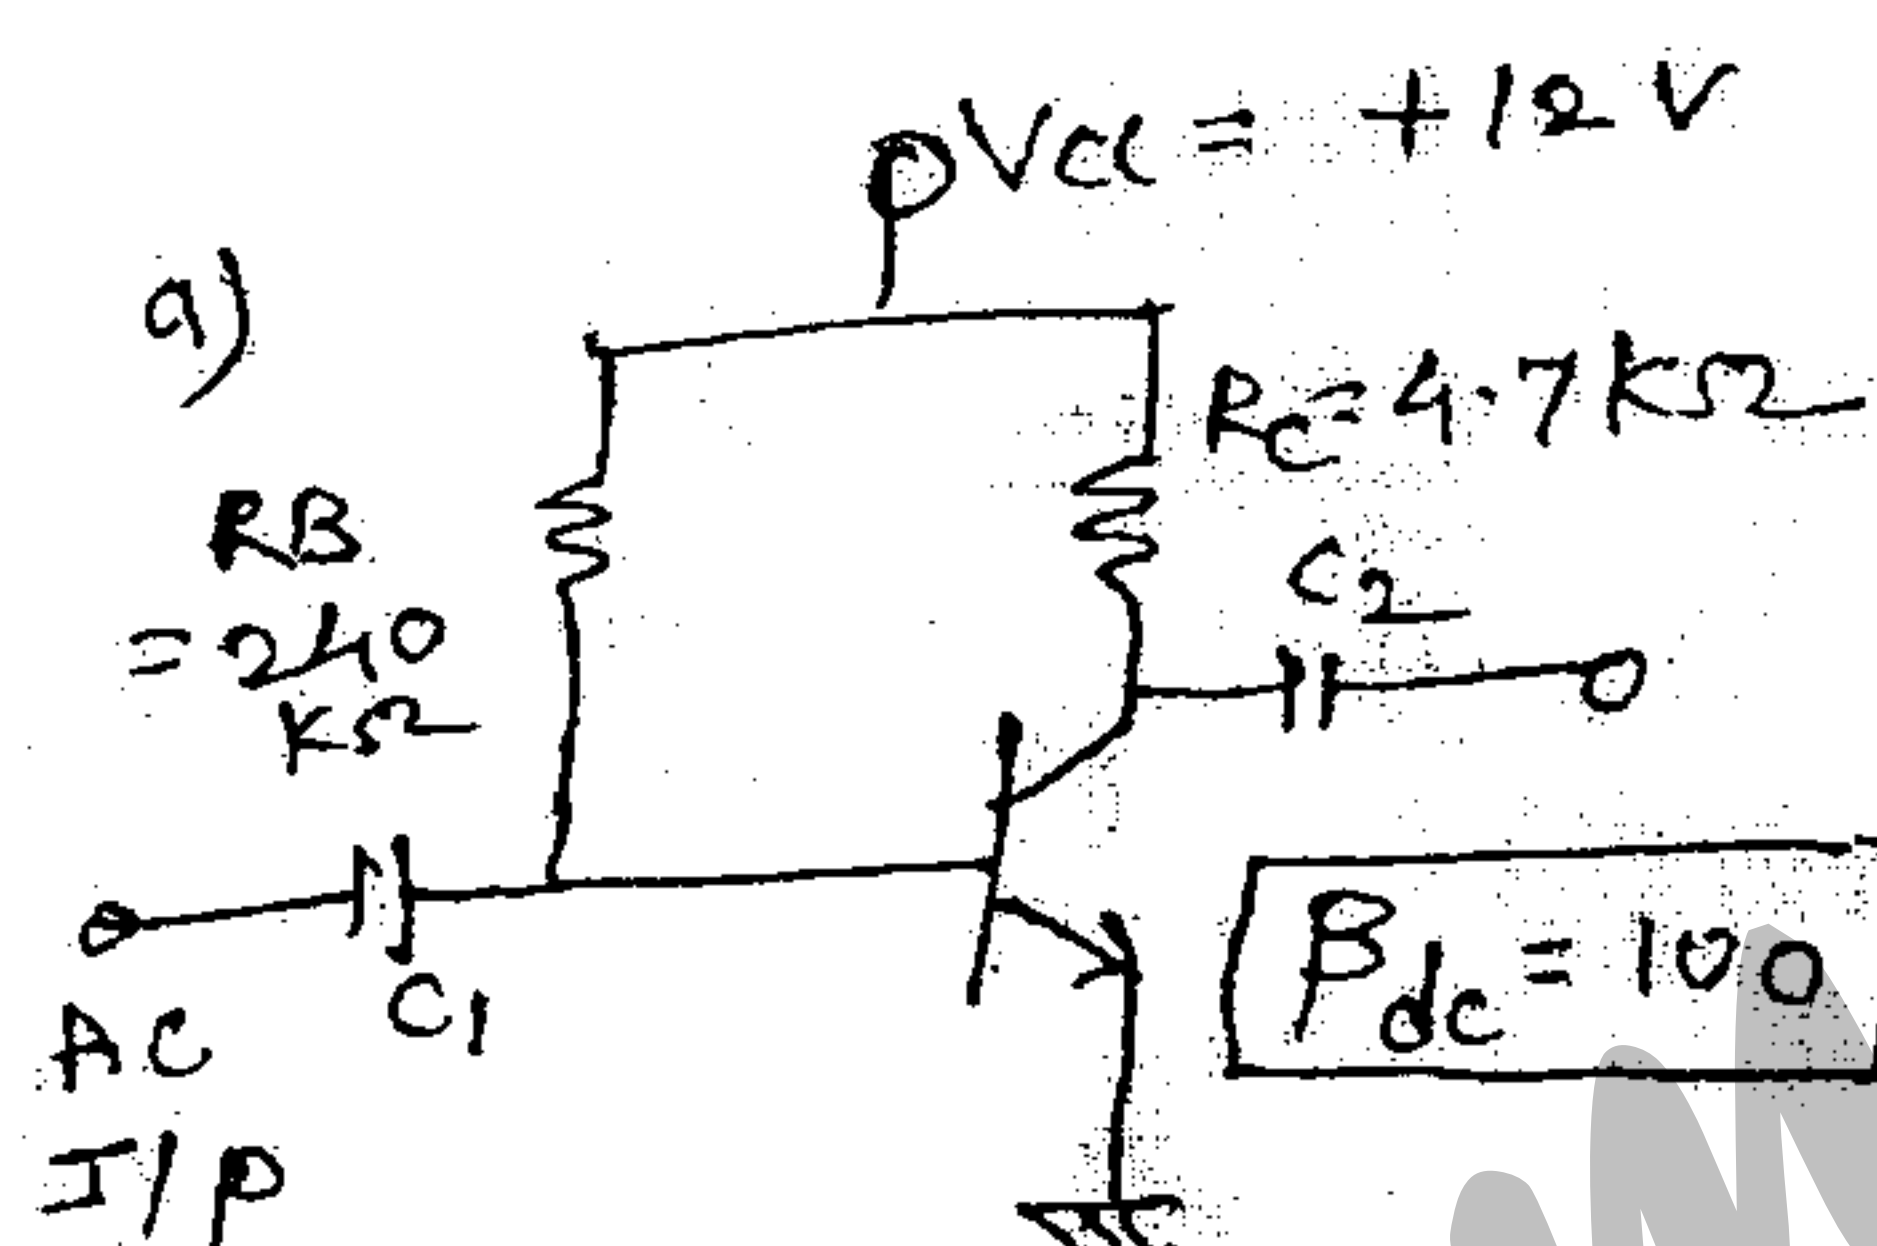 VCC = +12 V
a)
RC = 4.7 KΩ
RB
= 240
KΩ
C2
C1
βdc = 100
AC
I/P